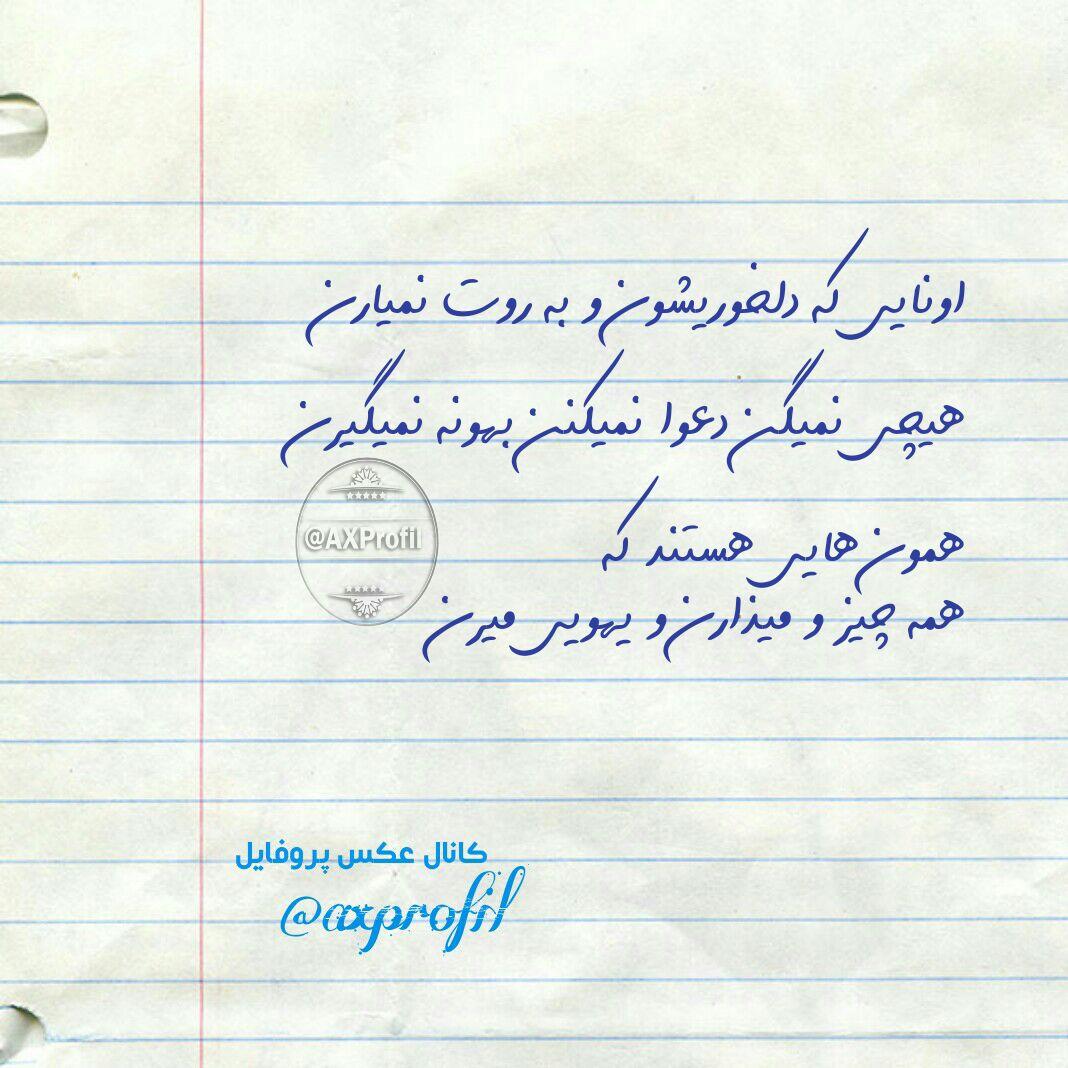 اونایی که دلخوریشون و به روت نمیارن
هیچی نمیگن دعوا نمیکنن بهونه نمیگیرن
@AXProfil
همون هایی هستند که
همه چیز و میذارن و یهویی میرن
کانال عکس پروفایل
@axprofil